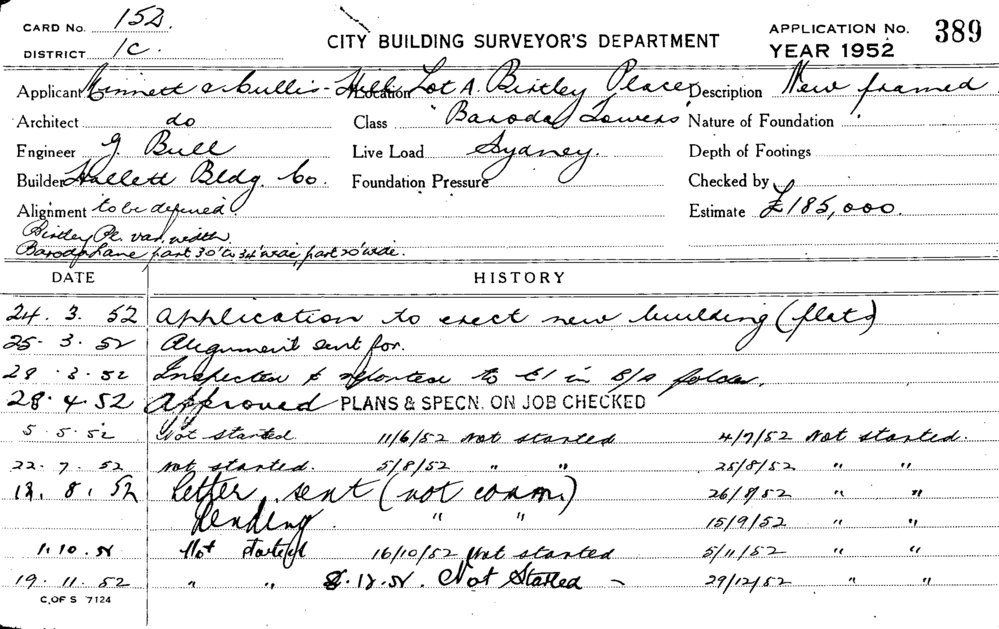 CARD No. 152.
DISTRICT 1C.
CITY BUILDING SURVEYOR'S DEPARTMENT
APPLICATION No. 389
YEAR 1952
Applicant Minnett & Cullis-Hill Location Lot A. Birtley Place Description New framed
Architect do Class Baroda Towers Nature of Foundation
Engineer G. Bull Live Load Sydney. Depth of Footings
Builder Hallett Bldg. Co. Foundation Pressure Checked by
Alignment to be defined. Estimate £185,000.
Birtley Pl. var. width
Baroda Lane part 30' to 34' wide, part 20' wide.
DATE HISTORY
24. 3. 52 Application to erect new building (flats)
25. 3. 52 Alignment sent for.
28. 3. 52 Inspected & reported to in B/A folder.
28. 4. 52 Approved PLANS & SPECN. ON JOB CHECKED
5. 5. 52 Not started. 11/6/52 Not started 4/7/52 Not started.
22. 7. 52 Not started. 5/8/52 " " 25/8/52 " "
18. 8. 52 Letter sent (not comm.) 26/8/52 " "
Pending. " " 15/9/52 " "
1. 10. 52 Not started 16/10/52 Not started 5/11/52 " "
19. 11. 52 " " 8. 12. 52. Not Started – 29/12/52 " "
C. OF S 7124